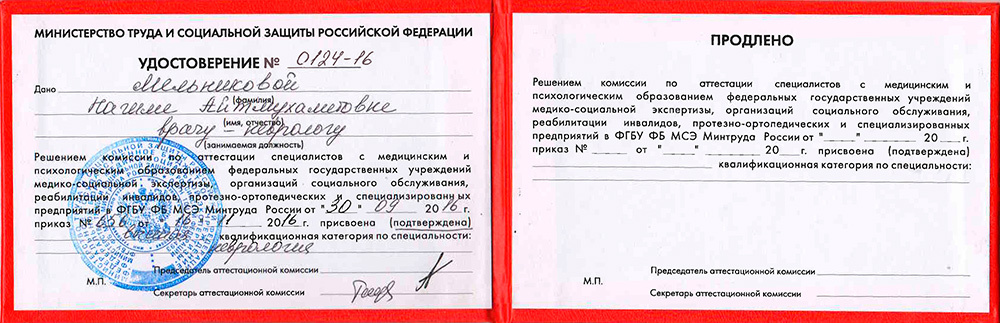 МИНИСТЕРСТВО ТРУДА И СОЦИАЛЬНОЙ ЗАЩИТЫ РОССИЙСКОЙ ФЕДЕРАЦИИ
УДОСТОВЕРЕНИЕ № 0124-16
Дано Мельниковой
(фамилия)
Нагиме Айтмухаметовне
(имя, отчество)
врачу - неврологу
(занимаемая должность)
Решением комиссии по аттестации специалистов с медицинским и
психологическим образованием федеральных государственных учреждений
медико-социальной экспертизы, организаций социального обслуживания,
реабилитации инвалидов, протезно-ортопедических и специализированных
предприятий в ФГБУ ФБ МСЭ Минтруда России от "30" 09 2016 г.
приказ № от " 16 " 11 2016 г. присвоена (подтверждена)
квалификационная категория по специальности:
неврология
Председатель аттестационной комиссии
М.П.
Секретарь аттестационной комиссии
ПРОДЛЕНО
Решением комиссии по аттестации специалистов с медицинским и
психологическим образованием федеральных государственных учреждений
медико-социальной экспертизы, организаций социального обслуживания,
реабилитации инвалидов, протезно-ортопедических и специализированных
предприятий в ФГБУ ФБ МСЭ Минтруда России от "____" ______ 20___г.
приказ № _____ от "____" _____ 20___г. присвоена (подтверждена)
квалификационная категория по специальности:
Председатель аттестационной комиссии
М.П.
Секретарь аттестационной комиссии